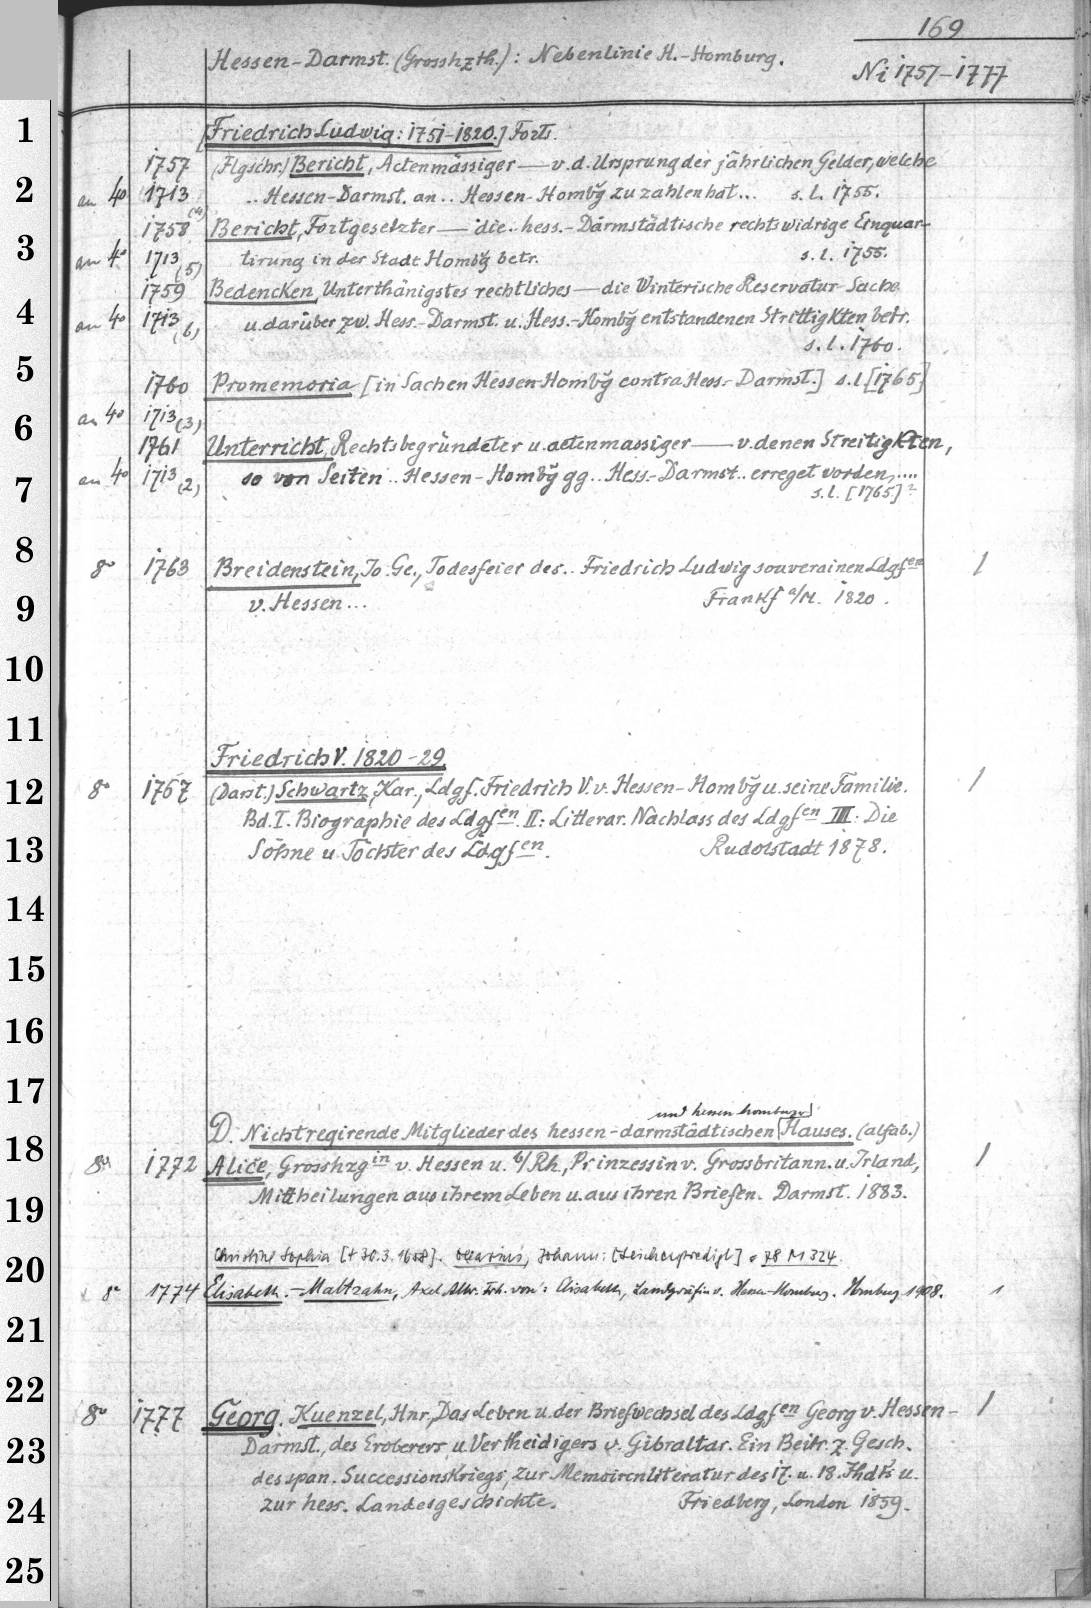 169
Hessen-Darmst. (Grosshzth.): Nebenlinie H.-Homburg.
Ni 1757-1777
1
[Friedrich Ludwig: 1751-1820.] Forts.
1757 (Flgschr.) Bericht, Actenmässiger — v. d. Ursprung der jährlichen Gelder, welche
2
an 4o 1713 (4) .. Hessen-Darmst. an .. Hessen-Hombg zu zahlen hat... s. l. 1755.
1758 Bericht, Fortgesetzter — die.. hess.-Därmstädtische rechtswidrige Einquar-
3
an 4o 1713 (5) tirung in der Stadt Hombg betr. s. l. 1755.
1759 Bedencken, Unterthänigstes rechtliches — die Winterische Reservatur-Sache
4
an 4o 1713 (6) u. darüber zw. Hess.-Darmst. u. Hess.-Hombg entstandenen Strittigkten betr.
s. l. 1760.
5
1760 Promemoria [in Sachen Hessen-Hombg contra Hess-Darmst.] s. l. [1765]
6
an 4o 1713 (3)
1761 Unterricht, Rechtsbegründeter u. actenmassiger — v. denen Streitigkten,
7
an 4o 1713 (2) so von Seiten .. Hessen-Hombg gg.. Hess-Darmst.. erreget worden,....
s. l. [1765] ?
8
8o 1763 Breidenstein, Jo. Ge., Todesfeier des.. Friedrich Ludwig souverainen Ldgfen 1
9
v. Hessen... Frankf a/M. 1820.
10
11
Friedrich V. 1820-29
12
8o 1767 (Darst.) Schwartz, Kar., Ldgf. Friedrich V. v. Hessen-Hombg u. seine Familie. 1
Bd. I. Biographie des Ldgfen. II: Litterar. Nachlass des Ldgfen III: Die
13
Söhne u. Töchter des Ldgfen. Rudolstadt 1878.
14
15
16
17
und hessen homburger
D. Nichtregirende Mitglieder des hessen-darmstädtischen Hauses. (alfab.)
18
8o 1772 Alice, Grosshzgin v. Hessen u. b/Rh., Prinzessin v. Grossbritann. u. Irland, 1
19
Mittheilungen aus ihrem Leben u. aus ihren Briefen. Darmst. 1883.
20
Christine Sophia [† 30.3.1658]. Olearius, Johann: [Leichenpredigt] 78 M 324.
8o 1774 Elisabeth. - Maltzahn, Axel Albr. Frh. von: Elisabeth, Landgräfin v. Hessen-Homburg. Homburg 1908. 1
21
22
8o 1777 Georg. Kuenzel, Hnr., Das Leben u. der Briefwechsel des Ldgfen Georg v. Hessen- 1
23
Darmst., des Eroberers u. Vertheidigers v. Gibraltar. Ein Beitr. z. Gesch.
des span. Successionskriegs, zur Memoirenliteratur des 17. u. 18. Jhdts u.
24
zur hess. Landesgeschichte. Friedberg, London 1859.
25